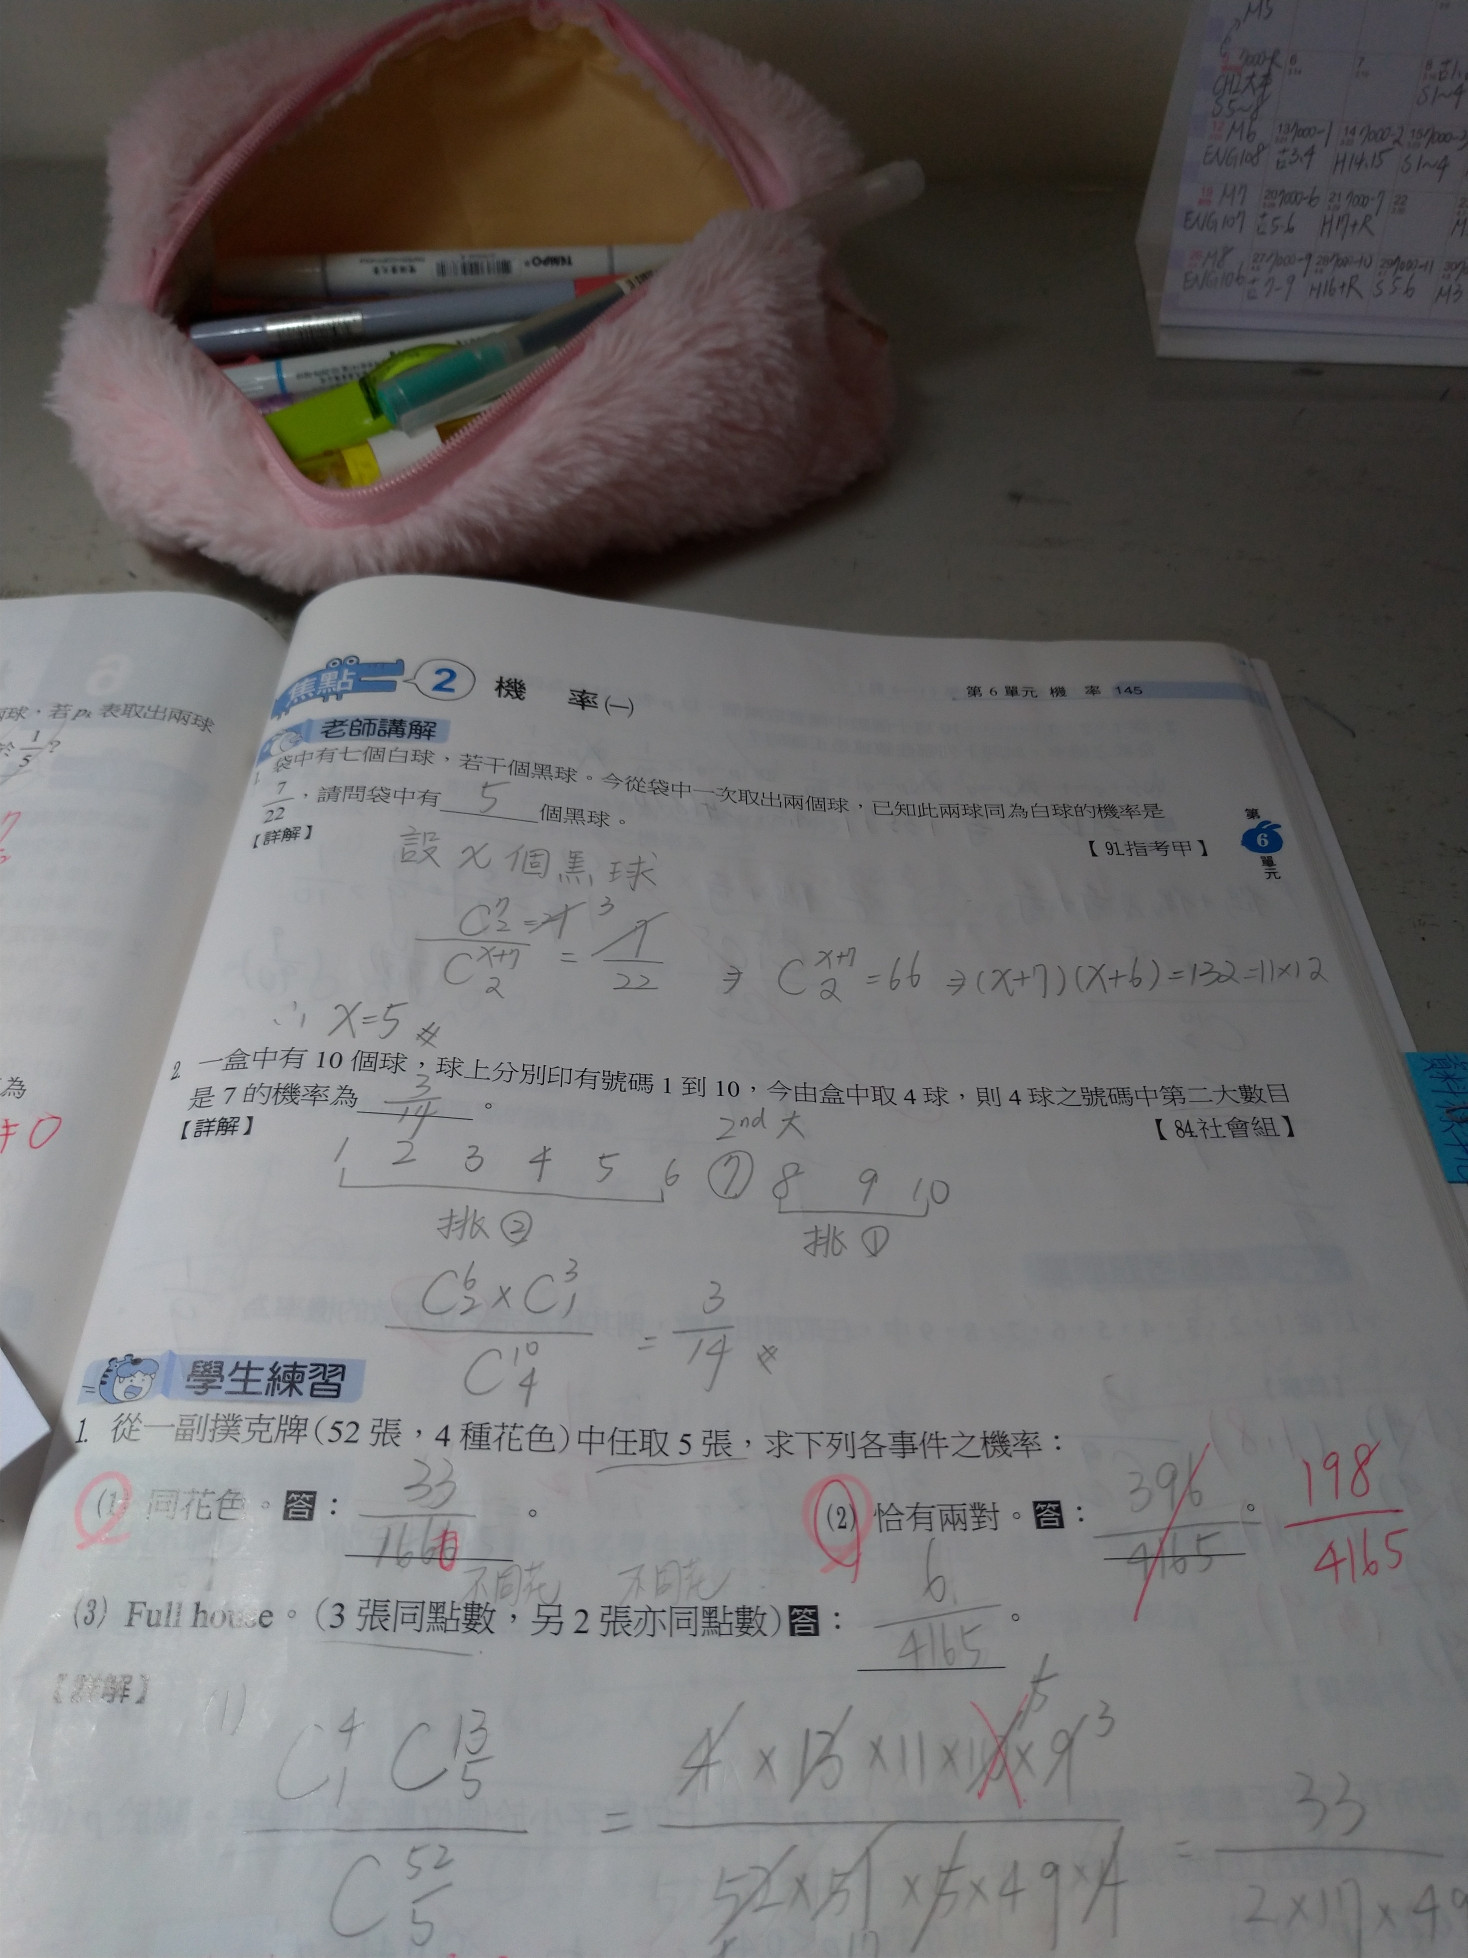 M5
7000-R 6 7
CH2
S5~8 S1~4
12 M6 13 7000-1 14 7000-2 15 7000-3
ENG108 3.4 H14.15 S1~4
19 M7 20 7000-6 21 7000-7 22
ENG107 5-6 H17+R
26 M8 27 7000-9 28 7000-10 29 7000-11
ENG106 7-9 H16+R S56 M3
TEMPO
6
球,若 pₖ 表取出兩球
於 1/5?
為
≠0
焦點 2 機 率(一)
第 6 單元 機 率 145
老師講解
1. 袋中有七個白球,若干個黑球。今從袋中一次取出兩個球,已知此兩球同為白球的機率是
7/22,請問袋中有 5 個黑球。
【詳解】 【91.指考甲】
第 6 單元
設 x 個黑球
C⁷₂=21 3 / Cˣ⁺⁷₂ = 7/22 ⇒ Cˣ⁺⁷₂ = 66 ⇒ (x+7)(x+6)=132=11×12
∴ x=5
2. 一盒中有 10 個球,球上分別印有號碼 1 到 10,今由盒中取 4 球,則 4 球之號碼中第二大數目
是 7 的機率為 3/14 。
【詳解】 【84.社會組】
2nd 大
1 2 3 4 5 6 ⑦ 8 9 10
挑② 挑①
C⁶₂×C³₁ / C¹⁰₄ = 3/14
學生練習
1. 從一副撲克牌(52 張,4 種花色)中任取 5 張,求下列各事件之機率:
(1) 同花色。答: 33/16660 。 (2) 恰有兩對。答: 396/4165 。 198/4165
不同花 不同花
(3) Full house。(3 張同點數,另 2 張亦同點數)答: 6/4165 。
【詳解】
(1) C⁴₁ C¹³₅ / C⁵²₅ = 4×13×11×10×9 5 3 / 52×51×5×49×4 = 33 / 2×17×49